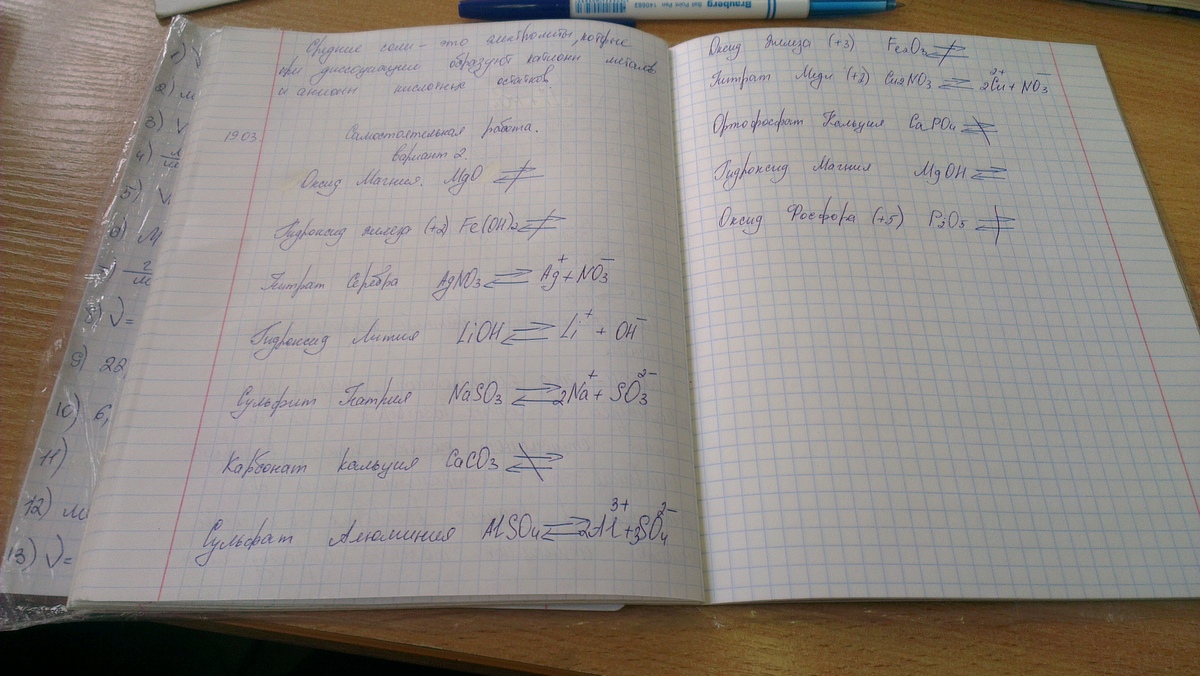 Средние соли - это электролиты, которые
при диссоциации образуют катионы металов
и анионы кислотных остатков.
19.03 Самостоятельная работа.
вариант 2.
Оксид Магния. MgO ⇌̸
Гидроксид железа (+2) Fe(OH)₂ ⇌̸
Нитрат Серебра AgNO₃ ⇌ Ag⁺ + NO₃⁻
Гидроксид Лития LiOH ⇌ Li⁺ + OH⁻
Сульфит Натрия NaSO₃ ⇌ 2Na⁺ + SO₃²⁻
Карбонат кальция CaCO₃ ⇌̸
Сульфат Алюминия AlSO₄ ⇌ 2Al³⁺ + 3SO₄²⁻
Оксид железа (+3) Fe₂O₃ ⇌̸
Нитрат Меди (+2) Cu2NO₃ ⇌ 2Cu²⁺ + NO₃⁻
Ортофосфат Кальция CaPO₄ ⇌̸
Гидроксид Магния MgOH ⇌
Оксид Фосфора (+5) P₂O₅ ⇌̸
1) V
2) м
3) V
4)
5) V
6) М
г/м
8) V=
9) 22
10) 6,
11)
12) м
13) V=
Brauberg
Ball Point Pen 140663